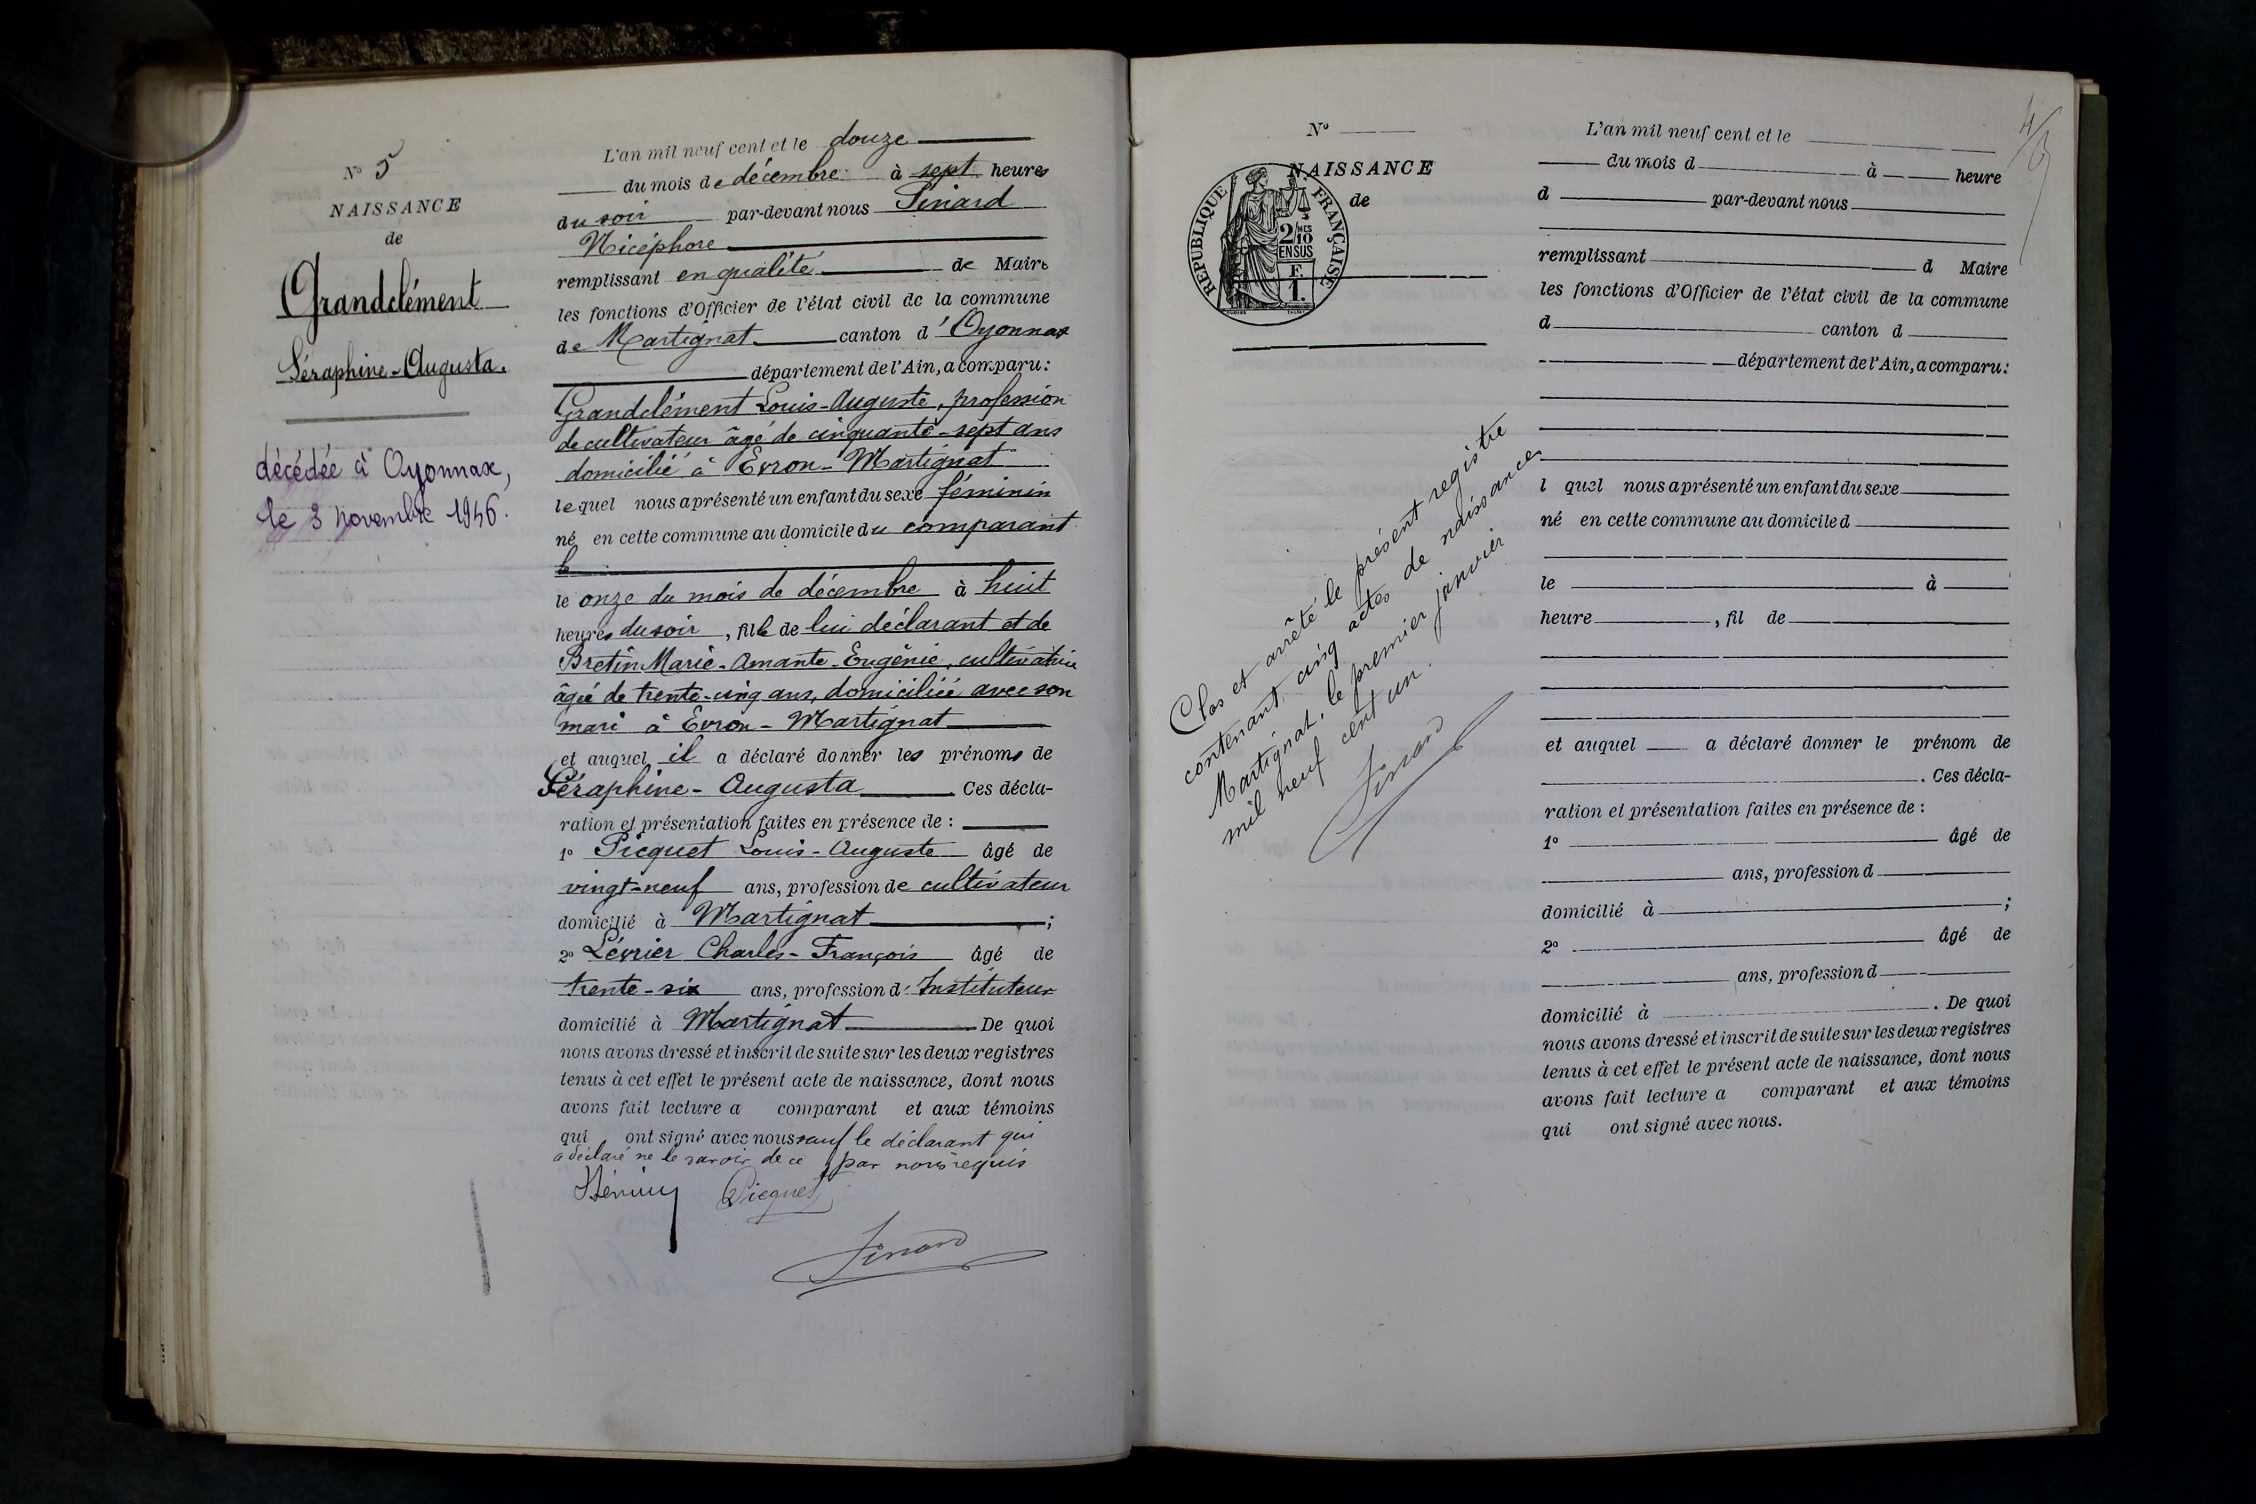 N° 5
NAISSANCE
de
Grandclément
Séraphine-Augusta.
décédée à Oyonnax,
le 3 novembre 1946.
L'an mil neuf cent et le douze
du mois de décembre à sept heures
du soir par-devant nous Sinard
Nicéphore
remplissant en qualité de Maire
les fonctions d'Officier de l'état civil de la commune
de Martignat canton d'Oyonnax
département de l'Ain, a comparu:
Grandclément Louis-Auguste, profession
de cultivateur âgé de cinquante-sept ans
domicilié à Evron-Martignat
lequel nous a présenté un enfant du sexe féminin
né en cette commune au domicile du comparant
le
le onze du mois de décembre à huit
heures du soir, fille de lui déclarant et de
Bretin Marie-Amante-Eugénie, cultivatrice
âgée de trente-cinq ans, domiciliée avec son
mari à Evron-Martignat
et auquel il a déclaré donner les prénoms de
Séraphine-Augusta. Ces décla-
ration et présentation faites en présence de :
1° Picquet Louis-Auguste âgé de
vingt-neuf ans, profession de cultivateur
domicilié à Martignat ;
2° Lévrier Charles-François âgé de
trente-six ans, profession d'Instituteur
domicilié à Martignat De quoi
nous avons dressé et inscrit de suite sur les deux registres
tenus à cet effet le présent acte de naissance, dont nous
avons fait lecture a comparant et aux témoins
qui ont signé avec nous sauf le déclarant qui
a déclaré ne le savoir de ce par nous requis
Picquet
Sinard
4/5
N°
NAISSANCE
de
REPUBLIQUE FRANÇAISE
2/10 MES
EN SUS
F.
1.
Clos et arrêté le présent registre
contenant cinq actes de naissances
Martignat, le premier janvier
mil neuf cent un.
Sinard
L'an mil neuf cent et le
du mois d à heure
d par-devant nous
remplissant d Maire
les fonctions d'Officier de l'état civil de la commune
d canton d
département de l'Ain, a comparu:
l quel nous a présenté un enfant du sexe
né en cette commune au domicile d
le à
heure , fil de
et auquel a déclaré donner le prénom de
. Ces décla-
ration et présentation faites en présence de :
1° âgé de
ans, profession d
domicilié à ;
2° âgé de
ans, profession d
domicilié à . De quoi
nous avons dressé et inscrit de suite sur les deux registres
tenus à cet effet le présent acte de naissance, dont nous
avons fait lecture a comparant et aux témoins
qui ont signé avec nous.